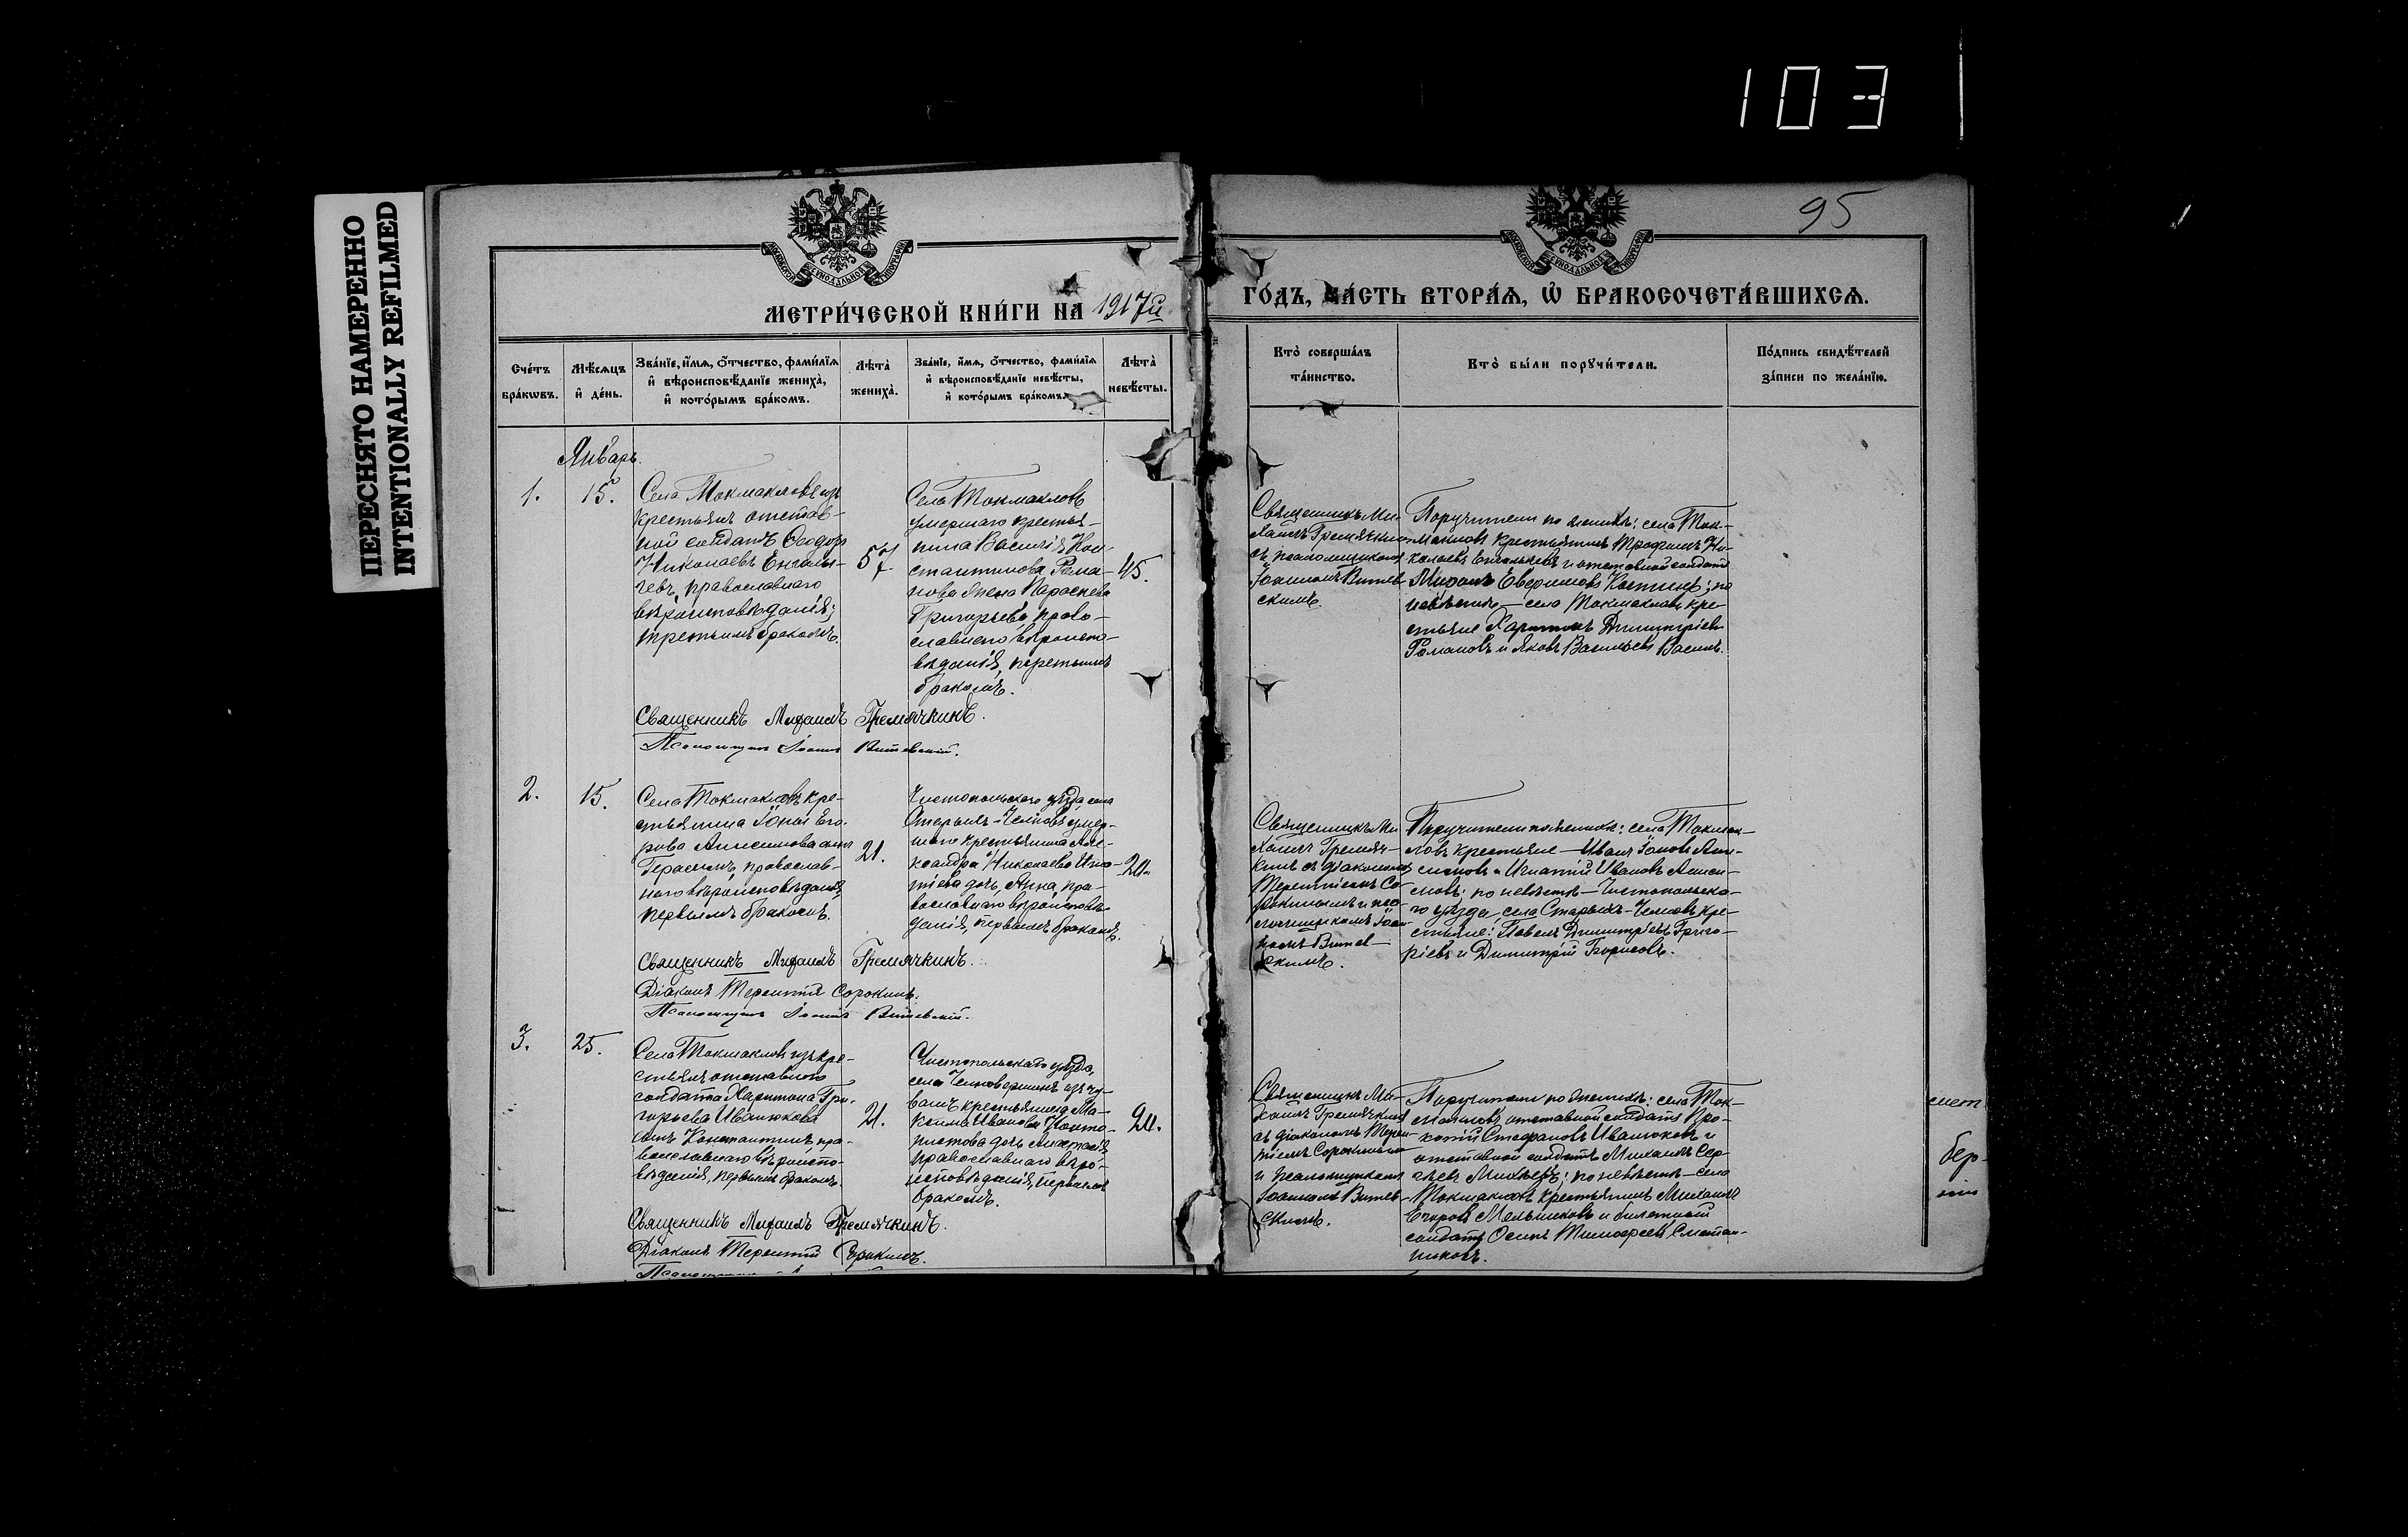 103
ПЕРЕСНЯТО НАМЕРЕННО
INTENTIONALLY REFILMED
95
МЕТРИ́ЧЕСКОЙ КНИ́ГИ НА 1917й
ГО́ДЪ, ЧА́СТЬ ВТОРА́Ѧ, Ѽ БРАКОСОЧЕТА́ВШИХСѦ.
Сче́тъ
бра́кѡвъ.
Мѣ́сѧцъ
и҆ де́нь.
Зва́нїе, и҆́мѧ, ѻ҆́тчество, фами́лїѧ
и҆ вѣроисповѣ́данїе жениха̀,
и҆ кото́рымъ бра́комъ.
Лѣта̀
жениха̀.
Зва́нїе, и҆́мѧ, ѻ҆́тчество, фами́лїѧ
и҆ вѣроисповѣ́данїе невѣ́сты,
и҆ кото́рымъ бра́комъ.
Лѣта̀
невѣ́сты.
Кто̀ соверша́лъ
та́инство.
Кто̀ бы́ли порꙋчи́тели.
По́дпись свидѣ́телей
за́писи по жела́нїю.
Январь.
1.
15.
Села Токмакловъ изъ
крестьянъ отстав-
ной солдатъ Ѳеодоръ
Николаевъ
православнаго
вѣроисповѣданія;
третьимъ бракомъ.
57.
Села Токмакловъ
умершаго крестья-
нина Василія Кон-
стантинова Рома-
нова жена Параскева
Григорьева, право-
славнаго вѣроиспо-
вѣданія,
бракомъ.
45.
Священникъ Ми-
хаилъ Гремячкинъ
съ псаломщикомъ
Іоанномъ Витев-
скимъ.
Поручители по женихѣ: села Ток-
макловъ крестьянинъ Трофимъ Ни-
колаевъ и отставной солдатъ
Костинъ; по
невѣстѣ — села Токмакловъ кре-
стьяне Харитонъ Димитріевъ
Романовъ и Яковъ Васильевъ
Священникъ Михаилъ Гремячкинъ.
Псаломщикъ Іоаннъ Витевскій.
2.
15.
Села Токмакловъ кре-
стьянина Іоны Его-
рова Анисимова сынъ
Герасимъ, православ-
наго вѣроисповѣданія,
первымъ бракомъ.
21.
Чистопольскаго уѣзда села
Старыхъ-Челновъ умер-
шаго крестьянина Але-
ксандра Николаева Игна-
тіева дочь Анна, пра-
вославнаго вѣроисповѣ-
данія, первымъ бракомъ.
20.
Священникъ Ми-
хаилъ Гремяч-
кинъ съ діакономъ
Терентіемъ Со-
рокинымъ и пса-
ломщикомъ Іоан-
номъ Витев-
скимъ.
Поручители по женихѣ: села Токмак-
ловъ крестьяне — Иванъ Іоновъ Ани-
симовъ и Игнатій Ивановъ Аниси-
мовъ; по невѣстѣ — Чистопольска-
го уѣзда, села Старыхъ-Челновъ кре-
стьяне: Павелъ Димитріевъ Григо-
ріевъ и Димитрій Борисовъ.
Священникъ Михаилъ Гремячкинъ.
Діаконъ Терентій Сорокинъ.
Псаломщикъ Іоаннъ Витевскій.
3.
25.
Села Токмакловъ изъ кре-
стьянъ отставного
солдата Харитона Гри-
горьева Иванюкова
сынъ Константинъ, пра-
вославнаго вѣроиспо-
вѣданія, первымъ бракомъ.
21.
Чистопольскаго уѣзда,
села изъ чу-
вашъ крестьянина Ма-
ксима Иванова
дочь Анастасія
православнаго вѣро-
исповѣданія, первымъ
бракомъ.
20.
Священникъ Ми-
хаилъ Гремячкинъ
съ діакономъ Терен-
тіемъ Сорокинымъ
и псаломщикомъ
Іоанномъ Витев-
скимъ.
Поручители по женихѣ: села Ток-
макловъ, отставной солдатъ Про-
копій Стефановъ Иванюковъ и
отставной солдатъ Михаилъ Сер-
гѣевъ Михѣевъ; по невѣстѣ — села
Токмакловъ крестьянинъ Михаилъ
Егоровъ Мельниковъ и билетный
солдатъ Осипъ Тимофеевъ Сметан-
никовъ.
Священникъ Михаилъ Гремячкинъ.
Діаконъ Терентій Сорокинъ.
бер-